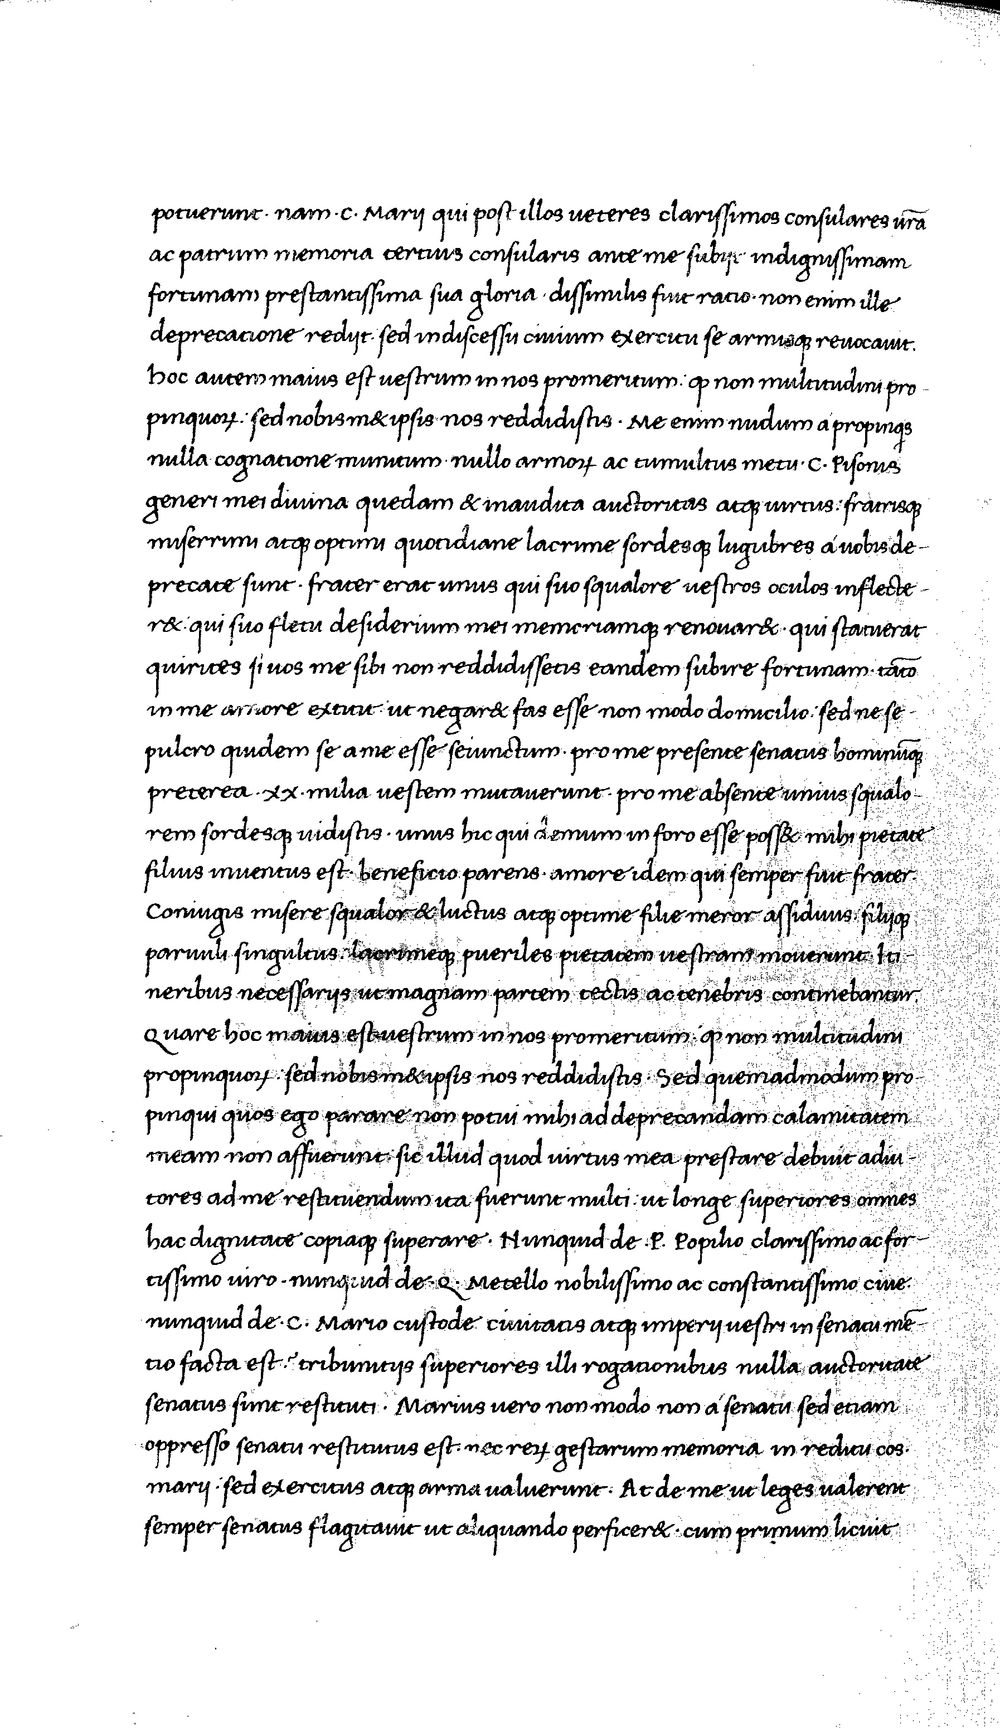 potuerunt · nam · C · Marij qui post illos ueteres clarissimos consulares ur̄a
ac patrum memoria tertius consularis ante me subijt indignissimam
fortunam prestantissima sua gloria · dissimilis fuit ratio · non enim ille
deprecatione redijt · sed in discessu ciuium exercitu se armisqꝫ reuocauit.
hoc autem maius est uestrum in nos promeritum : ꝙ non multitudini pro-
pinquoꝝ : sed nobismet ipsis nos reddidistis · Me enim nudum a propinqs
nulla cognatione munitum · nullo armoꝝ ac tumultus metu · C · Pisonis
generi mei diuina quedam & inaudita auctoritas atqꝫ uirtus : fratrisqꝫ
miserrimi atqꝫ optimi quotidiane lacrime sordesqꝫ lugubres a uobis de-
precate sunt · frater erat unus qui suo squalore uestros oculos inflecte-
r& · qui suo fletu desiderium mei memoriamqꝫ renouar& · qui statuerat
quirites si uos me sibi non reddidissetis eandem subire fortunam · tāto
in me amore extitit : ut negar& fas esse non modo domicilio : sed ne se-
pulcro quidem se a me esse seiunctum · pro me presente senatus hominūqꝫ
preterea · xx · milia uestem mutauerunt · pro me absente unius squalo-
rem sordesqꝫ uidistis · unus hic qui demum in foro esse poss& mihi pietate
filius inuentus est · beneficio parens · amore idem qui semper fuit frater.
Coniugis misere squalor & luctus atqꝫ optime filie meror assiduus : filijqꝫ
paruuli singultus : lacrimeqꝫ pueriles pietatem uestram mouerunt · Iti-
neribus necessarijs ut magnam partem tectis ac tenebris continebantur.
Quare hoc maius est uestrum in nos promeritum : ꝙ non multitudini
propinquoꝝ : sed nobism& ipsis nos reddidistis · Sed quemadmodum pro-
pinqui quos ego parare non potui mihi ad deprecandam calamitatem
meam non affuerunt : sic illud quod uirtus mea prestare debuit adiu-
tores ad me restituendum ita fuerunt multi : ut longe superiores omnes
hac dignitate copiaqꝫ superare · Nunquid de · P · Popilio clarissimo ac for-
tissimo uiro · nunquid de · Q · Metello nobilissimo ac constantissimo ciue ·
nunquid de · C · Mario custode ciuitatis atqꝫ imperij uestri in senatu mē-
tio facta est · tribunitijs superiores illi rogationibus nulla auctoritate
senatus sunt restituti · Marius uero non modo non a senatu sed etiam
oppresso senatu restitutus est · nec reꝝ gestarum memoria in reditu cos ·
marij · sed exercitus atqꝫ arma ualuerunt · At de me ut leges ualerent
semper senatus flagitauit ut aliquando perficer& · cum primum licuit